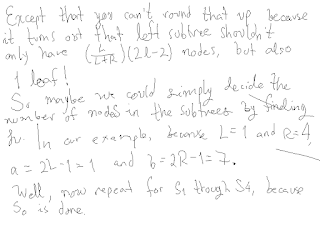 Except that you can't round that up because
it turns out that left subtree shouldn't
only have (L/(L+R))(2l-2) nodes, but also
1 leaf!
So maybe we could simply decide the
number of nodes in the subtrees by finding
In our example, because L=1 and R=4,
a = 2L-1=1 and b=2R-1=7.
Well, now repeat for S1 though S4, because
S0 is done.